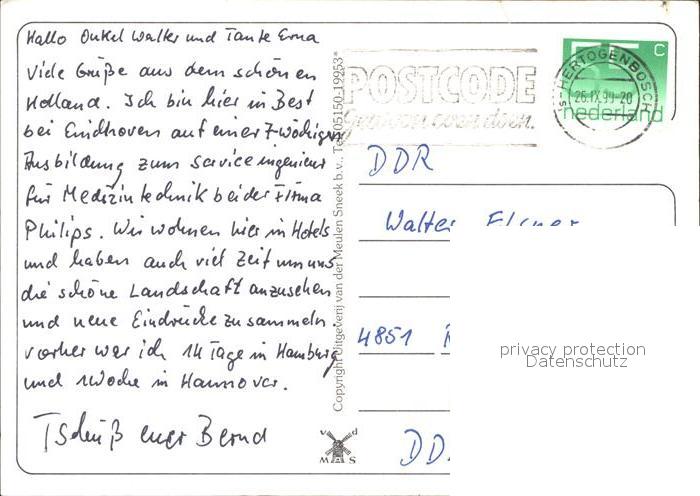 Hallo Onkel Walter und Tante Erna
Viele Grüße aus dem schönen
Holland. Ich bin hier in Best
bei Eindhoven auf einer 7wöchigen
Ausbildung zum Serviceingenieur
für Medizintechnik bei der Firma
Philips. Wir wohnen hier in Hotels
und haben auch viel Zeit um uns
die schöne Landschaft anzusehen
und neue Eindrücke zu sammeln.
Vorher war ich 14 Tage in Hamburg
und 1 Woche in Hannover.
Tschüß euer Bernd
Copyright Uitgeverij van der Meulen Sneek b.v., Tel. 05150-19953*
v d
M S
POSTCODE
gewoon even doen.
'S-HERTOGENBOSCH
26.IX.90-20
55 C
nederland
DDR
Walter
4851
DD
privacy protection
Datenschutz